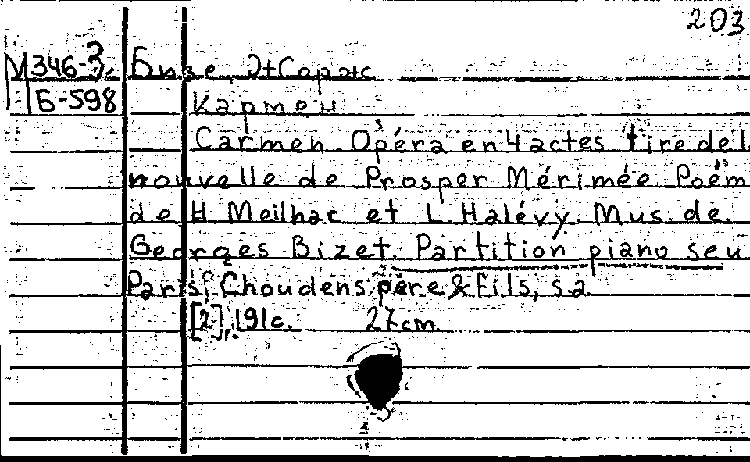 203
М346-3 Бизе, Жорж
Б-598 Кармен
Carmen. Opéra en 4 actes tiré de l
nouvelle de Prosper Mérimée Poëm
de H Meilhac et L. Halévy. Mus. de
Georges Bizet. Partition piano seu
Paris, Choudens père & Fils, s.a.
[2], 191c. 27cm